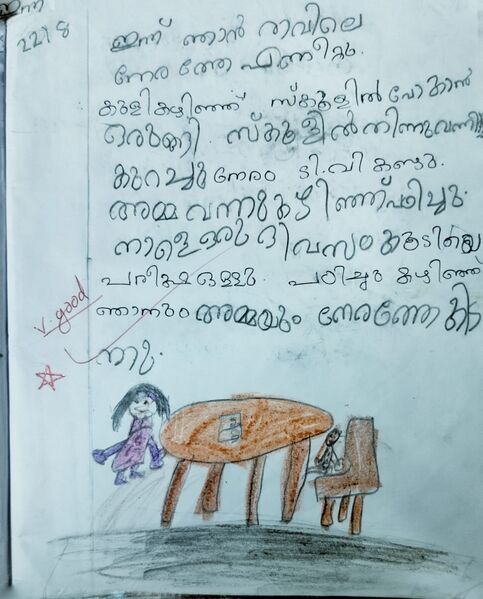 ഇന്ന്
2218
ഇന്ന് ഞാൻ രാവിലെ
നേരത്തേ എണീറ്റു.
കുളികഴിഞ്ഞ് സ്കൂളിൽ പോകാൻ
ഒരുങ്ങി. സ്കൂളിൽ നിന്നുവന്നിട്ട്
കുറച്ചു നേരം ടി.വി കണ്ടു.
അമ്മ വന്നുകഴിഞ്ഞ് പഠിച്ചു.
നാളെ ഒരു ദിവസം കൂടിയെ
പരീക്ഷ ഒള്ളു. പഠിച്ചു കഴിഞ്ഞ്
ഞാനും അമ്മയും നേരത്തേ കിട
ന്നു.
v.good